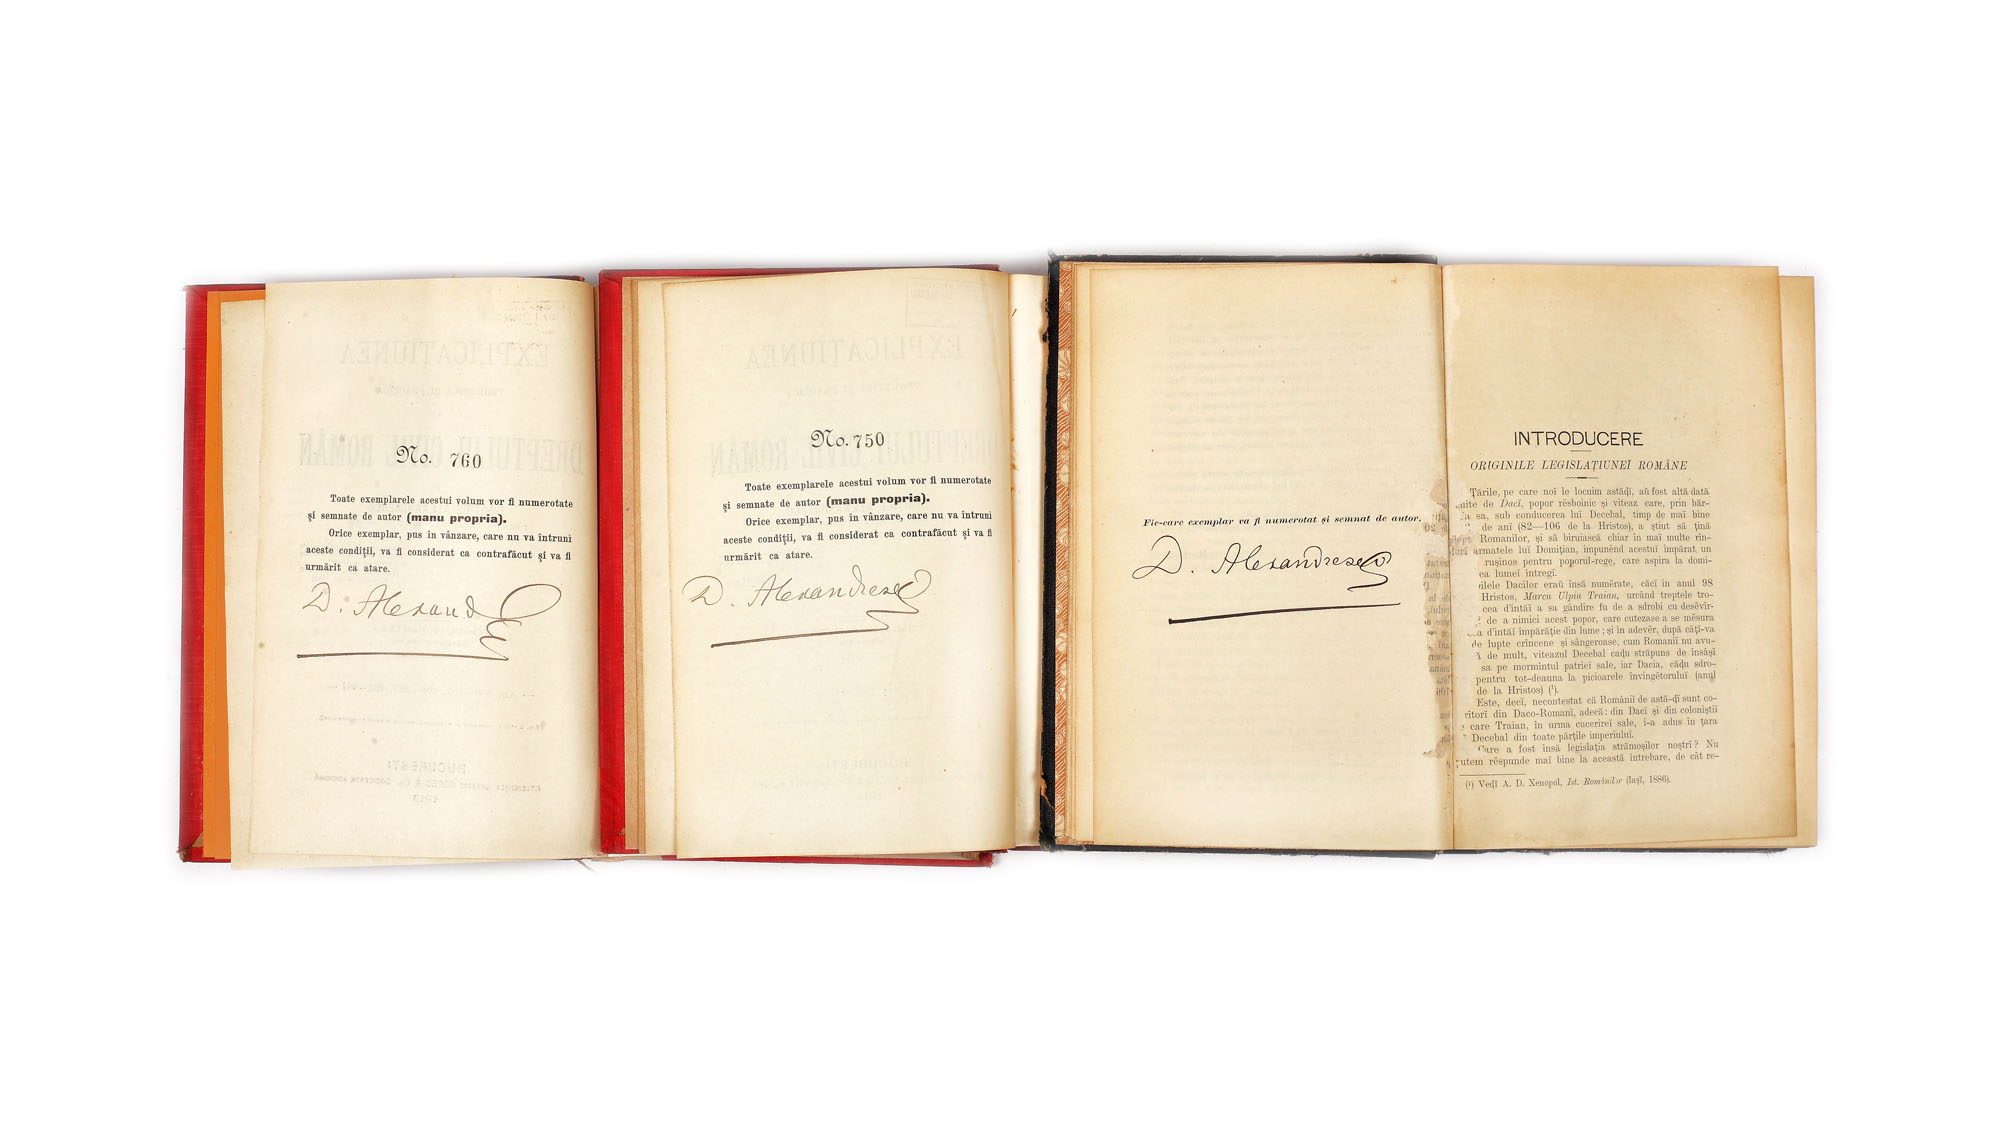 No. 760
Toate exemplarele acestui volum vor fi numerotate
și semnate de autor (manu propria).
Orice exemplar, pus in vânzare, care nu va întruni
aceste condiții, va fi considerat ca contrafăcut și va fi
urmărit ca atare.
D. Alexand
No. 750
Toate exemplarele acestui volum vor fi numerotate
și semnate de autor (manu propria).
Orice exemplar, pus in vânzare, care nu va intruni
aceste condiții, va fi considerat ca contrafăcut și va fi
urmărit ca atare.
D. Alexandresco
Fie-care exemplar va fi numerotat și semnat de autor.
D. Alexandresco
INTRODUCERE
ORIGINILE LEGISLAȚIUNEĬ ROMÂNE
Țările, pe care noĭ le locuim astăḑĭ, aŭ fost altă dată
de Dacĭ, popor rĕsboinic și viteaz care, prin băr-
sa, sub conducerea luĭ Decebal, timp de maĭ bine
de anĭ (82—106 de la Hristos), a știut să țină
Romanilor, și să biruiască chiar in maĭ multe rîn-
armatele luĭ Domițian, impunênd acestuĭ impărat un
rușinos pentru poporul-rege, care aspira la domi-
ea lumeĭ intregĭ.
ilele Dacilor eraŭ însă numĕrate, căcĭ in anul 98
Hristos, Marcu Ulpiu Traian, urcând treptele tro-
cea d'intâĭ a sa gândire fu de a sdrobi cu desĕvir-
de a nimici acest popor, care cutezase a se mĕsura
d'intâĭ impărăție din lume; și in adevĕr, după câțĭ-va
de lupte crîncene și sângeroase, cum Romaniĭ nu avu-
de mult, viteazul Decebal cadu străpuns de însăși
sa pe mormintul patrieĭ sale, iar Dacia, cădu sdro-
pentru tot-deauna la picioarele invingĕtoruluĭ (anul
de la Hristos) (¹).
Este, decĭ, necontestat că Româniĭ de astă-ḑĭ sunt co-
ritorĭ din Daco-Romanĭ, adecă: din Dacĭ și din coloniștiĭ
care Traian, in urma cucerireĭ sale, i-a adus in țara
Decebal din toate părțile imperiuluĭ.
Care a fost insă legislația strămoșilor noștri? Nu
putem rĕspunde maĭ bine la această intrebare, de cât re-
(¹) Veḑĭ A. D. Xenopol, Ist. Românilor (Iașĭ, 1886).